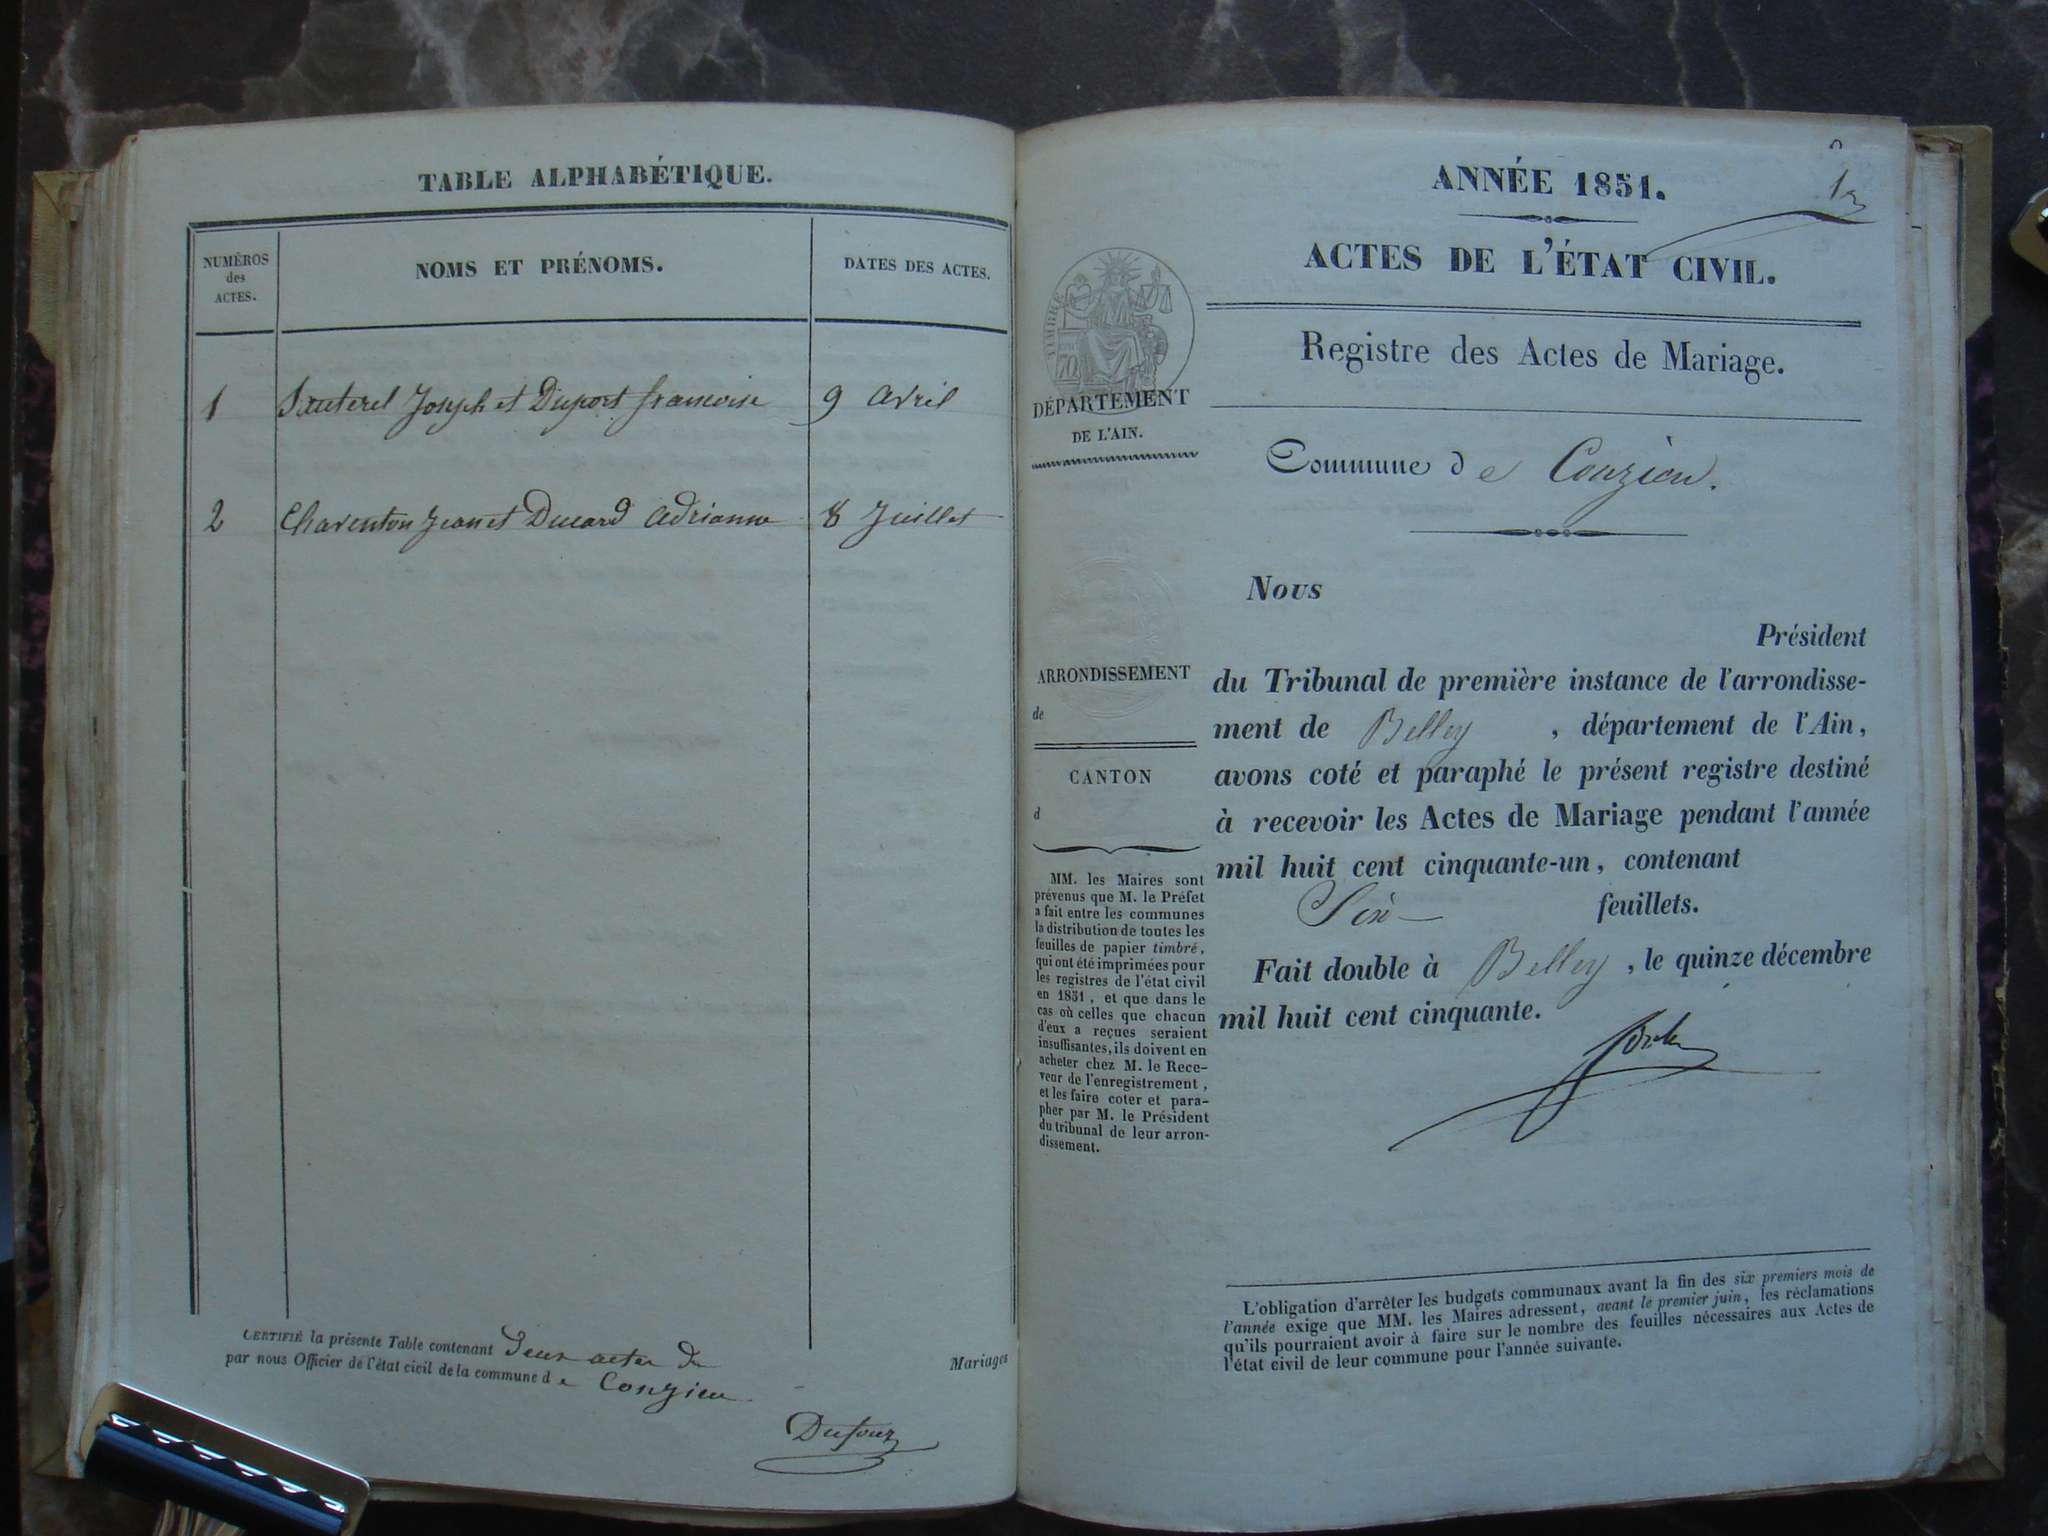 TABLE ALPHABÉTIQUE.
NUMÉROS
des
ACTES.
NOMS ET PRÉNOMS.
DATES DES ACTES.
1 Sauterel Joseph et Duport francoise 9 avril
2 Charenton Jean et Ducard adrianne 8 Juillet
CERTIFIÉ la présente Table contenant deux actes de
Mariages
par nous Officier de l'état civil de la commune d e Conzieu
Dufour
1
ANNÉE 1851.
ACTES DE L'ÉTAT CIVIL.
Registre des Actes de Mariage.
TIMBRE
70
DÉPARTEMENT
DE L'AIN.
Commune d e Conzieu.
Nous
Président
du Tribunal de première instance de l'arrondisse-
ment de Belley , département de l'Ain,
avons coté et paraphé le présent registre destiné
à recevoir les Actes de Mariage pendant l'année
mil huit cent cinquante-un, contenant
Six feuillets.
Fait double à Belley , le quinze décembre
mil huit cent cinquante.
ARRONDISSEMENT
de
CANTON
d
MM. les Maires sont
prévenus que M. le Préfet
a fait entre les communes
la distribution de toutes les
feuilles de papier timbré,
qui ont été imprimées pour
les registres de l'état civil
en 1851, et que dans le
cas où celles que chacun
d'eux a reçues seraient
insuffisantes, ils doivent en
acheter chez M. le Rece-
veur de l'enregistrement,
et les faire coter et para-
pher par M. le Président
du tribunal de leur arron-
dissement.
L'obligation d'arrêter les budgets communaux avant la fin des six premiers mois de
l'année exige que MM. les Maires adressent, avant le premier juin, les réclamations
qu'ils pourraient avoir à faire sur le nombre des feuilles nécessaires aux Actes de
l'état civil de leur commune pour l'année suivante.